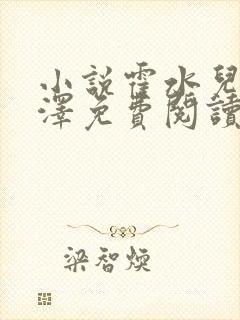 小說霍水兒
澤免費閱讀
梁智煥